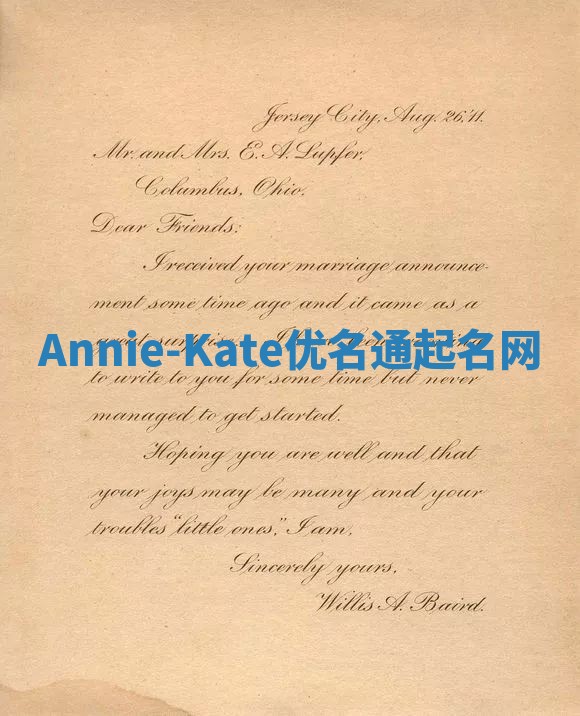 Jersey City, Aug. 26,'11.
Mr. and Mrs. E. A. Lupfer,
Columbus, Ohio.
Dear Friends:
I received your marriage announce-
ment some time ago and it came as a
great surprise.
Annie-Kate优名通起名网
to write to you for some time but never
managed to get started.
Hoping you are well and that
your joys may be many and your
troubles "little ones," I am,
Sincerely yours,
Willis A. Baird.